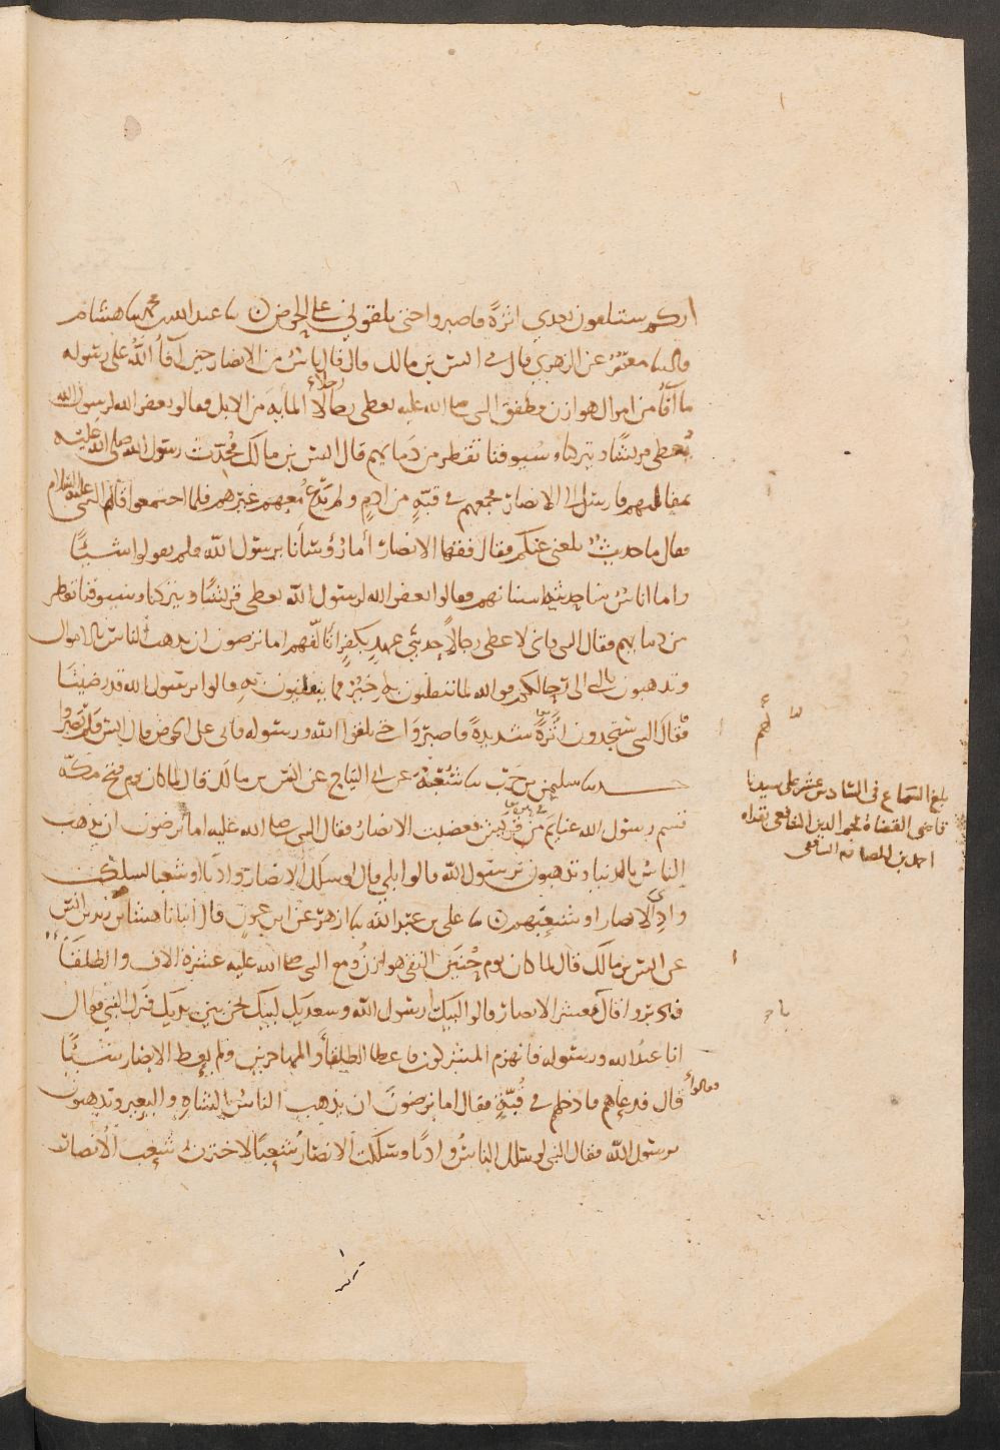 اركم ستلقون بعدي اثرة فاصبروا حتى تلقوني على الحوض ن ىا عبد الله بن محمد ىا هشام
قال ىا معمر عن الزهري قال انس بن مالك قال قال ناس من الانصار حين آفأ الله على رسوله
ما آفأ من اموال هوازن وطفق النبي صلى الله عليه يعطي رجالا المأية من الابل فقالو يغفر الله لرسول الله
يعطي قريشا ويتركنا وسيوفنا تقطر من دمايهم قال انس بن مالك فحدث رسول الله صلى الله عليه
بمقالتهم فارسل الى الانصار فجمعهم في قبة من ادم ولم يدع معهم غيرهم فلما اجتمعوا قام النبي عليه السلام
فقال ما حديث بلغني عنكم فقال فقها الانصار أما رؤسأنا يرسول الله فلم يقولوا شيئا
واما اناس منا حديثة اسنانهم فقالوا يغفر الله لرسول الله يعطي قريشا ويتركنا وسيوفنا تقطر
من دمايهم فقال النبي فاني لاعطي رجالا حديثي عهد بكفر اتألفهم اما ترضون ان يذهب الناس بالاموال
وتذهبون بالنبي الى رحالكم فوالله لما تنقلبون به خير مما ينقلبون به قالوا يرسول الله قد رضينا
فقال النبي ستجدون اثرة شديدة فاصبروا حتى تلقوا الله ورسوله فاني على الحوض قال انس فلم تصبروا
حدىا سليمن بن حرب ىا شعبة عن ابي التياح عن انس بن مالك قال لما كان يوم فتح مكة
قسم رسول الله غنايم من قريش فغضبت الانصار فقال النبي صلى الله عليه اما ترضون ان يذهب
الناس بالدنيا وتذهبون برسول الله قالوا بلى قال لو سلك الانصار واديا او شعبا لسلكت
وادي الانصار او شعبهم ن ىا علي بن عبد الله ىا ازهر عن ابن عون قال انبانا هشام بن زيد بن انس
عن انس بن مالك قال لما كان يوم حنين التقى هوازن ومع النبي صلى الله عليه عشرة الاف والطلقآ
فادبروا قال معشر الانصار قالوا لبيك ارسول الله وسعديك لبيك نحن بين يديك فنزل النبي فقال
انا عبد الله ورسوله فانهزم المشركون فاعطا الطلقأ والمهاجرين ولم يعط الانصار شيئا
فقالوا
قال فدعاهم فادخلهم في قبة فقال اما ترضون ان يذهب الناس بالشاه والبعير وتذهبون
برسول الله فقال النبي لو سلك الناس واديا وسلكت الانصار شعبا لاخترت شعب الانصار
بلغ السماع في السادس عشر على سيدنا
قاضي القضاة نجم الدين الشافعي بقراه
احمد بن